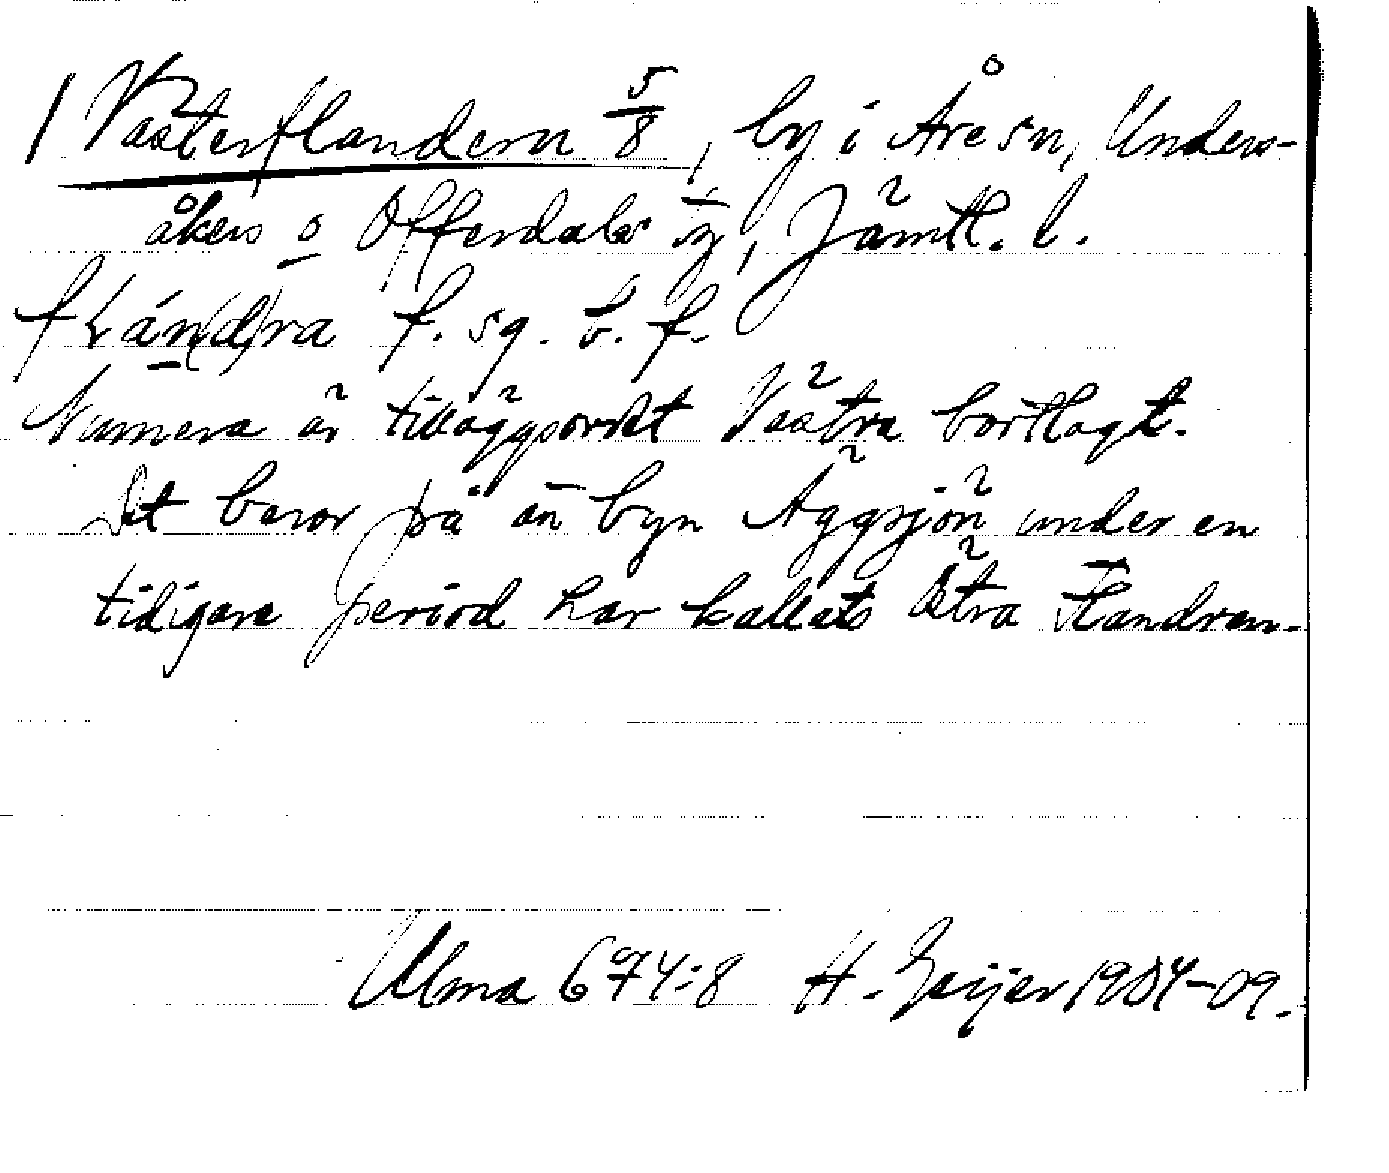 / Västerflandern 5/8, by i Åre sn, Unders-
åkers o Offerdals tg, Jämtl. l.
flán(d)ra f. sg. b. f.
Numera är tilläggsordet Västra bortlagt.
Det beror på att byn Äggsjön under en
tidigare period har kallats Östra Flandran.
Ulma 674:8 H. Geijer 1904-09.